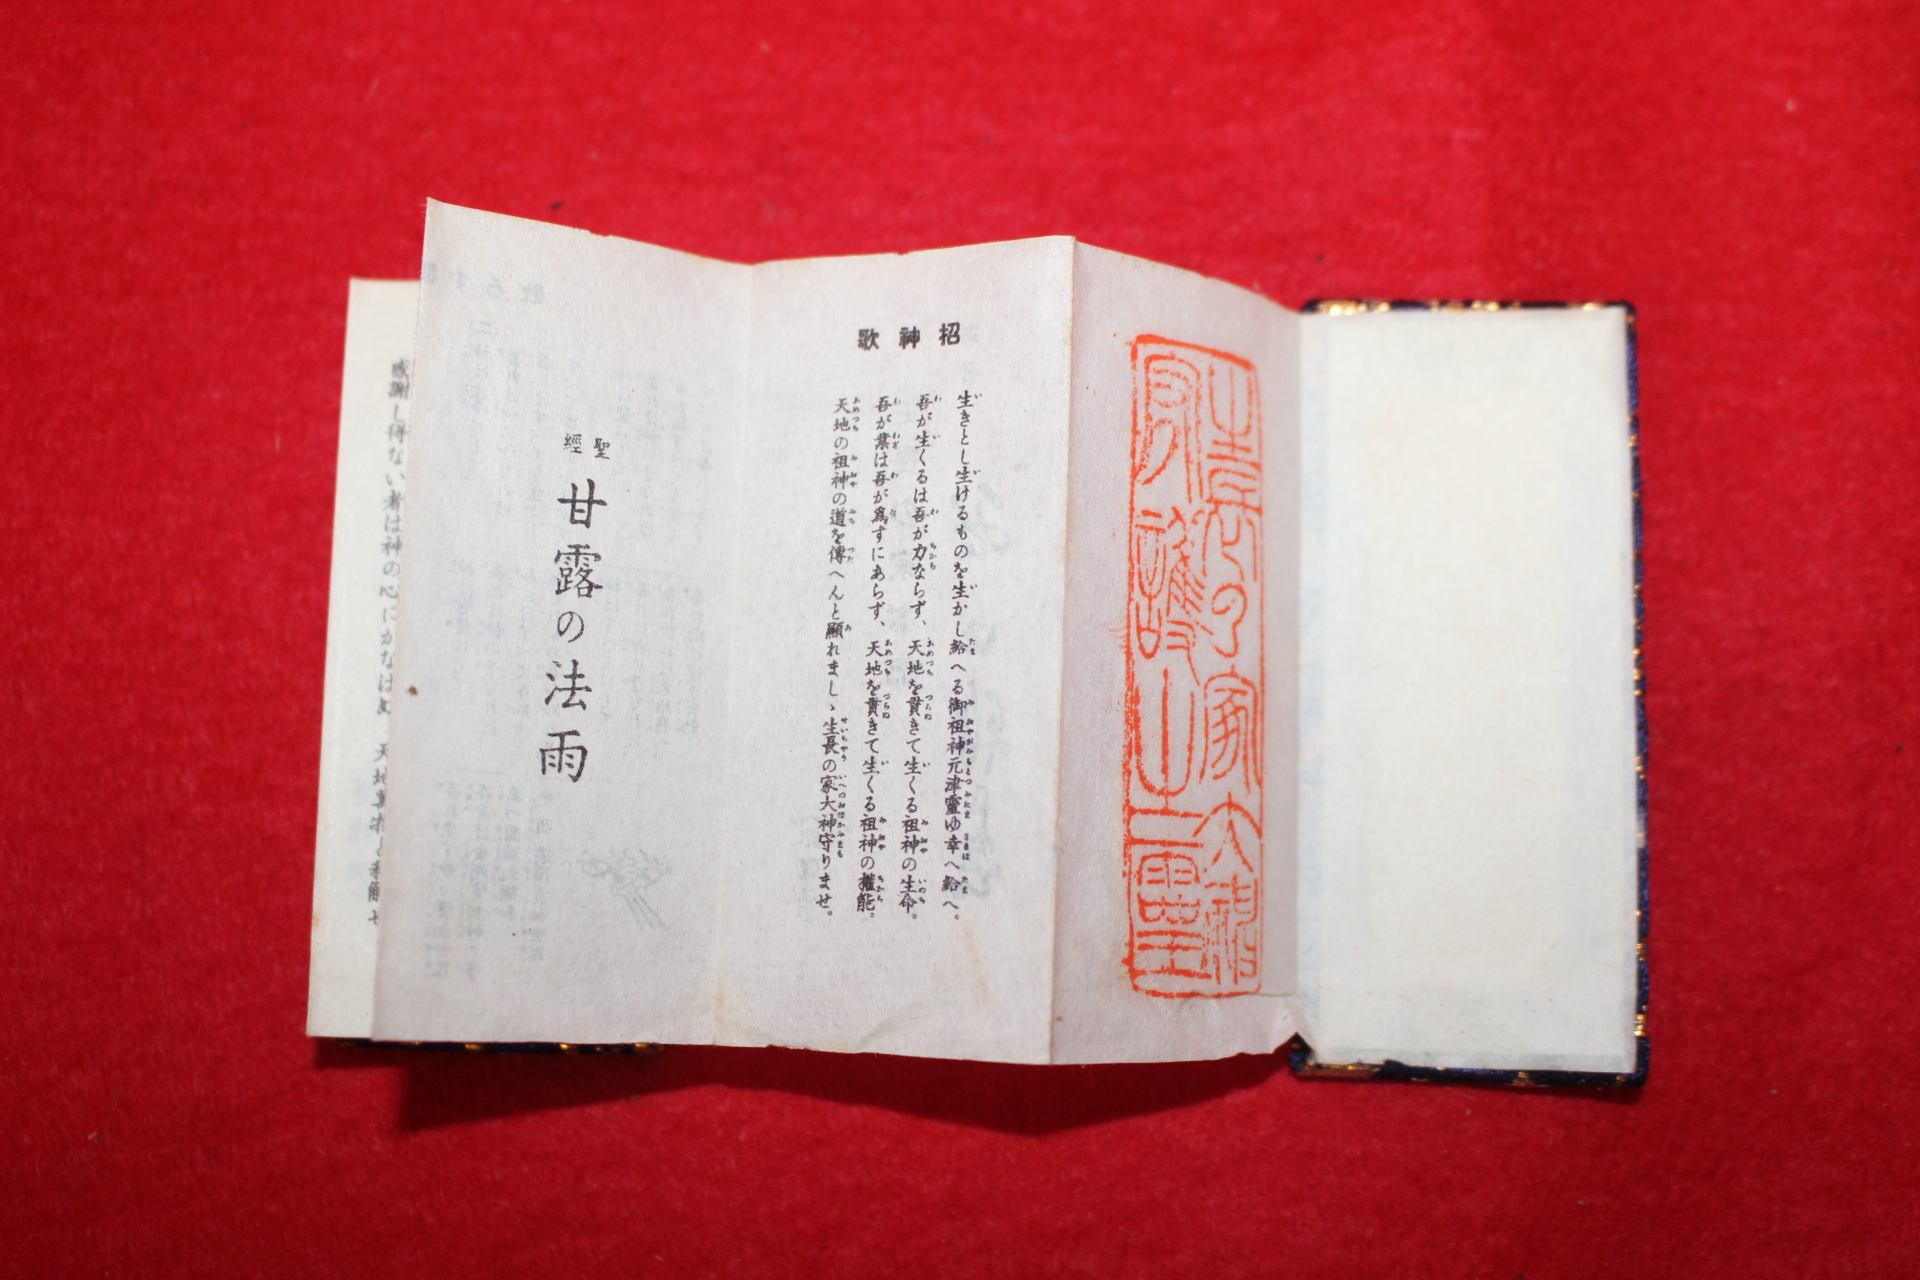 生長の家大神
守護
招神歌
生きとし生けるものを生かし給へる御祖神元津靈ゆ幸へ給へ。
吾が生くるは吾が力ならず、天地を貫きて生くる祖神の生命。
吾が業は吾が爲すにあらず、天地を貫きて生くる祖神の權能。
天地の祖神の道を傳へんと顯れまし、生長の家大神守りませ。
聖經
甘露の法雨
感謝し得ない者は神の心にかなはぬ